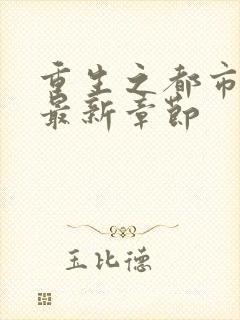 重生之都市
最新章节
玉比德